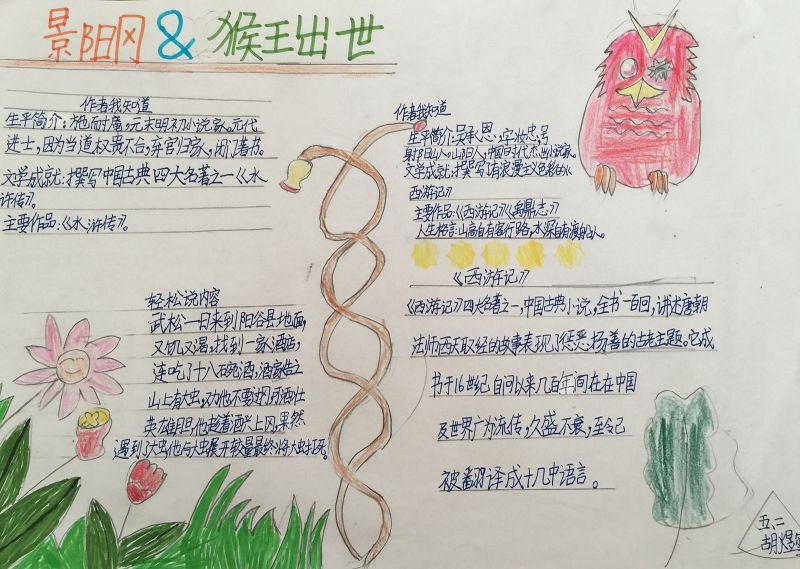 景阳冈&猴王出世
作者我知道
生平简介:施耐庵,元末明初小说家。元代
进士,因为当道权贵不合,弃官归家,闭门著书。
文学成就:撰写中国古典四大名著之一《水
浒传》。
主要作品:《水浒传》。
轻松说内容
武松一日来到阳谷县地面,
又饥又渴,找到一家酒店,
连吃了十八碗酒,酒家告之
山上有大虫,劝他不要过冈,可酒壮
英雄胆,他趁着酒兴上冈,果然
遇到了大虫,他与大虫展开较量最终将大虫打死。
作者我知道
生平简介:吴承恩,字汝忠,号
射阳山人。山阳人,中国明代杰出小说家。
文学成就:撰写了有浪漫主义色彩的《
西游记》
主要作品:《西游记》《禹鼎志》
人生格言:山高自有客行路,水深自有渡船人。
《西游记》
《西游记》四大名著之一,中国古典小说,全书一百回,讲述唐朝
法师西天取经的故事表现了惩恶扬善的古老主题。它成
书于16世纪自问以来几百年间在在中国
及世界广为流传,久盛不衰,至今已
被翻译成十几中语言。
五、二
胡煜